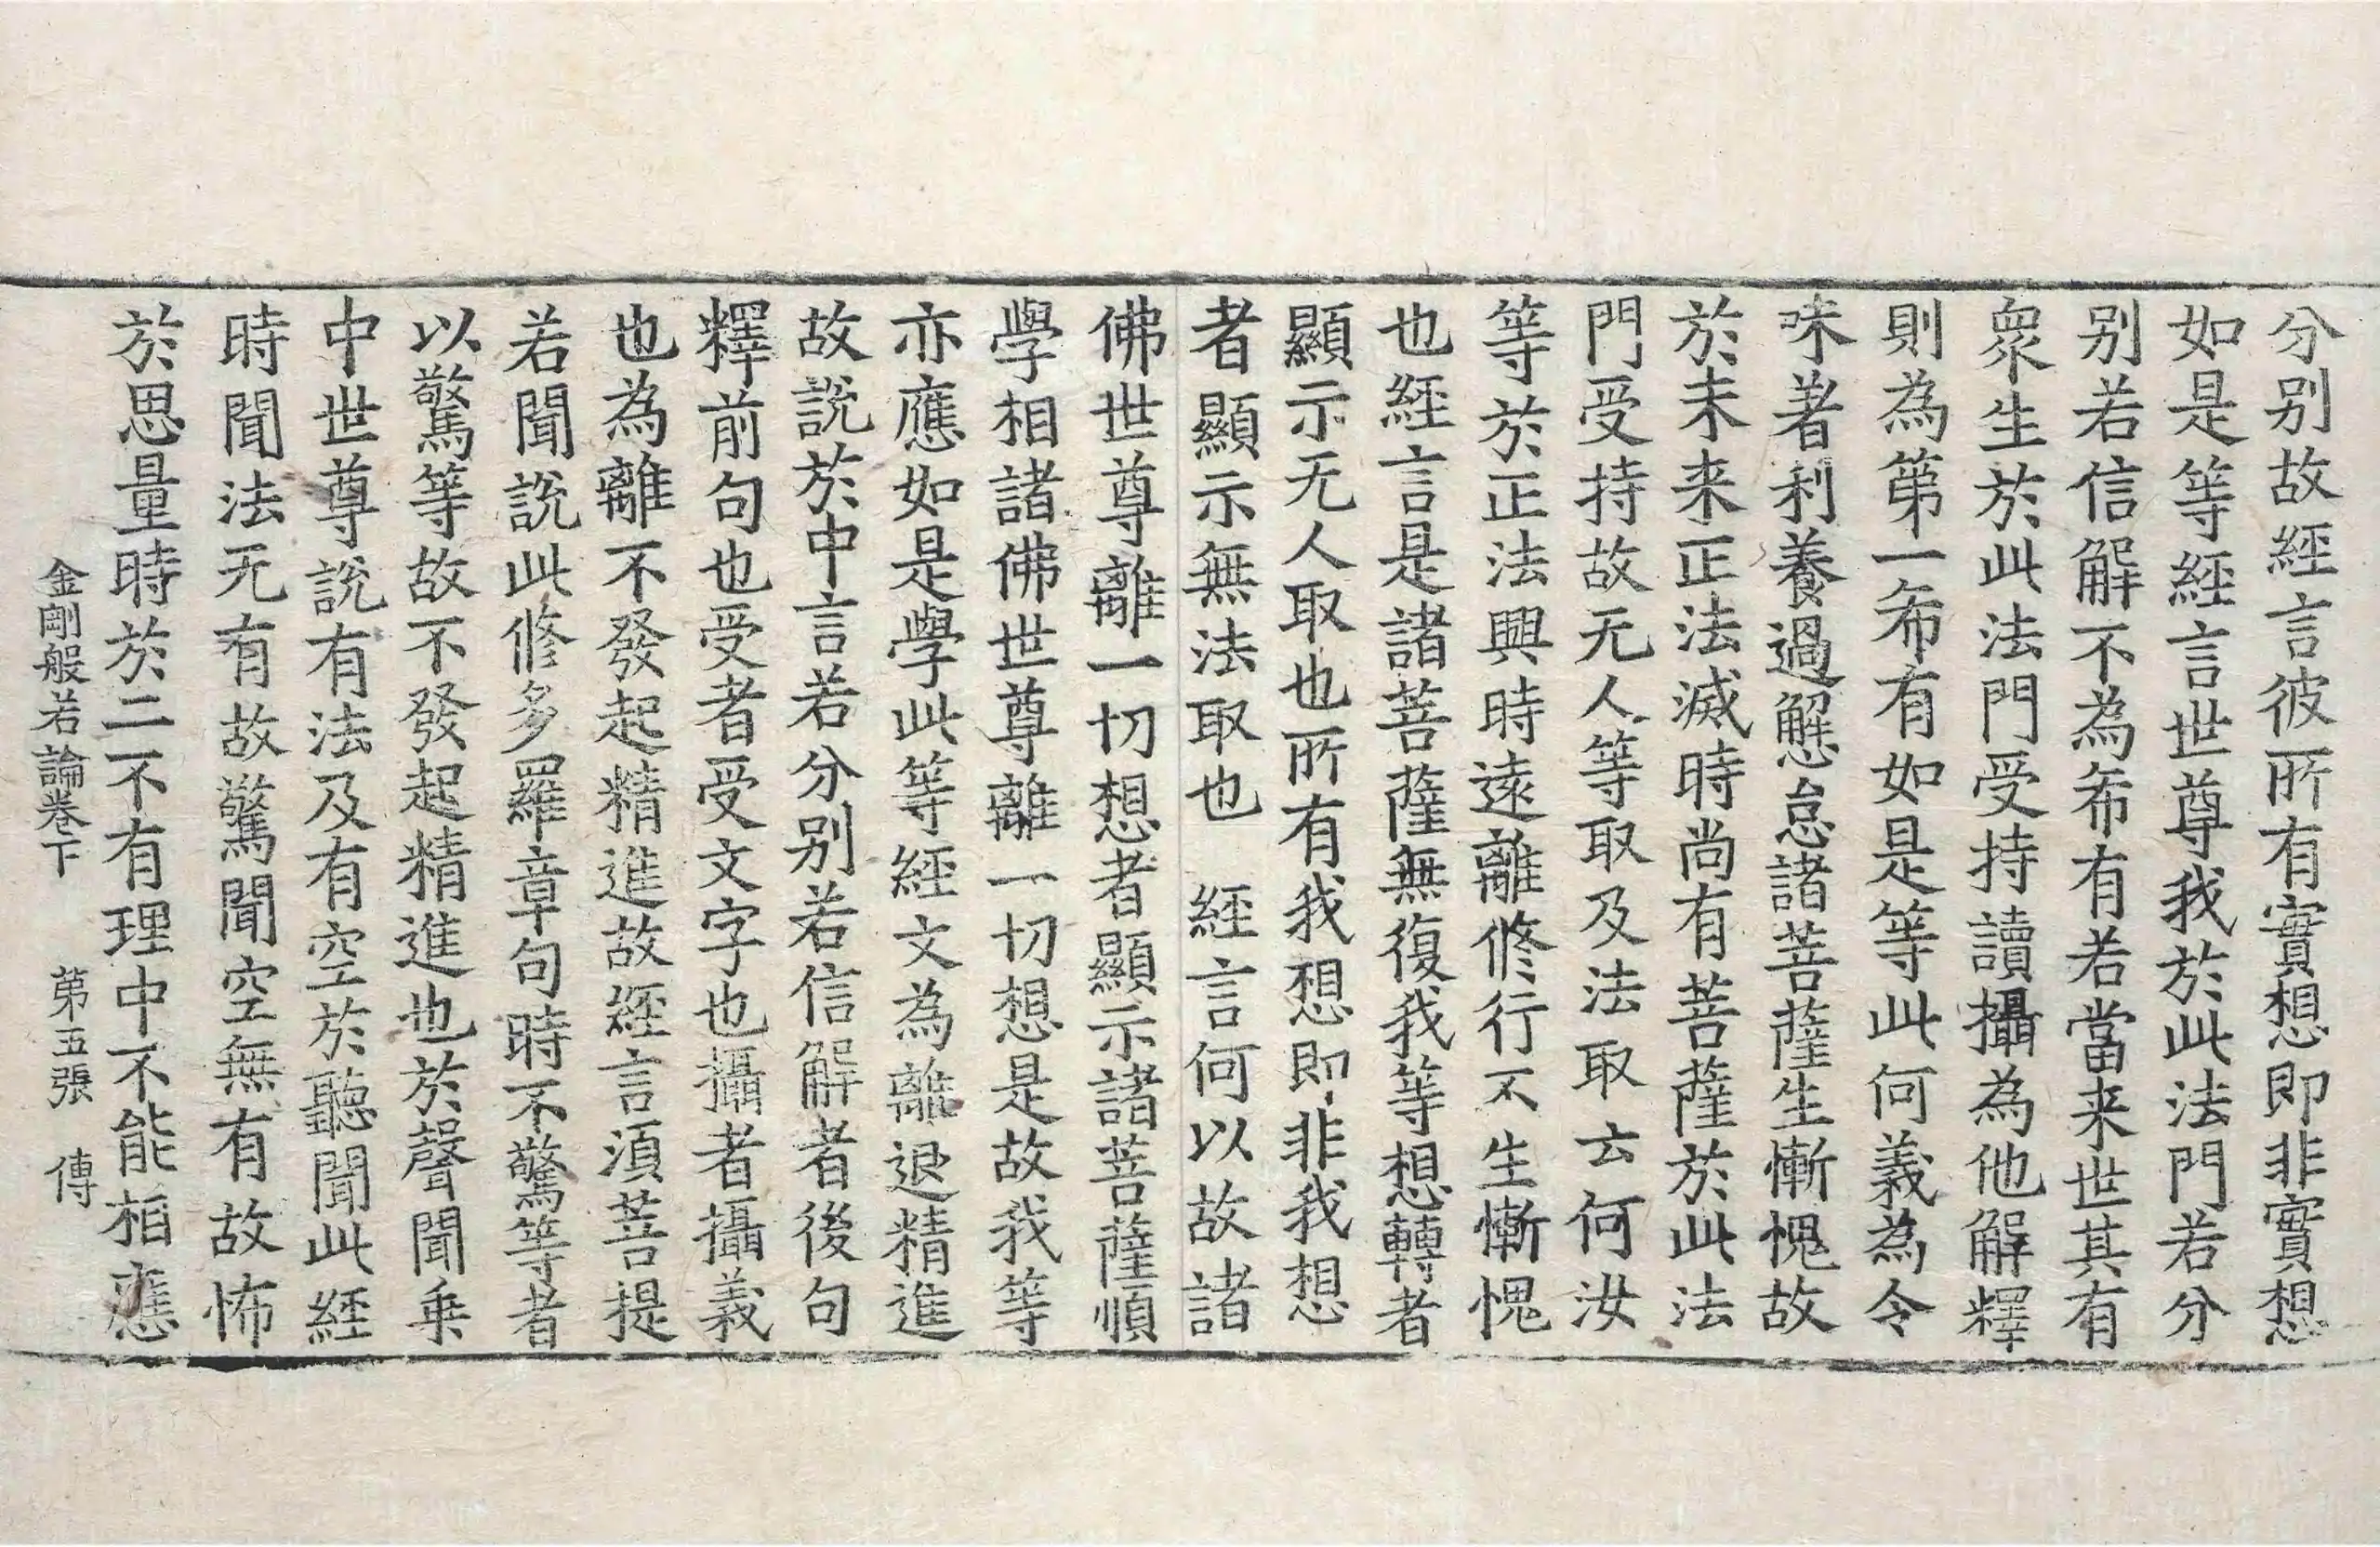 分别故經言彼所有實想即非實想
如是等經言世尊我於此法門若分
别若信解不為希有若當来世其有
衆生於此法門受持讀攝為他解釋
則為第一希有如是等此何義為令
味著利養過懈怠諸菩薩生慚愧故
於未来正法滅時尚有菩薩於此法
門受持故无人等取及法取云何汝
等於正法興時遠離修行不生慚愧
也經言是諸菩薩無復我等想轉者
顯示无人取也所有我想即非我想
者顯示無法取也　經言何以故諸
佛世尊離一切想者顯示諸菩薩順
學相諸佛世尊離一切想是故我等
亦應如是學此等經文為離退精進
故説於中言若分别若信解者後句
釋前句也受者受文字也攝者攝義
也為離不發起精進故經言湏菩提
若聞説此修多羅章句時不驚等者
以驚等故不發起精進也於聲聞乗
中世尊説有法及有空於聽聞此經
時聞法无有故驚聞空無有故怖
於思量時於二不有理中不能相應
金剛般若論卷下　第五張　傳